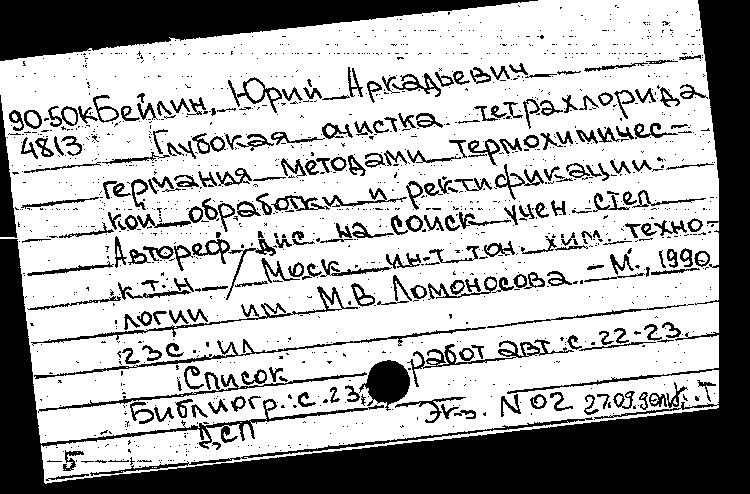 90-50к Бейлин, Юрий Аркадьевич
4813 Глубокая очистка тетрахлорида
германия методами термохимичес-
кой обработки и ректификации:
Автореф. дис. на соиск учен. степ
к.т.н / Моск. ин-т тон. хим. техно-
логии им. М.В. Ломоносова. - М., 1990
23с.: ил
Список работ авт.: с. 22-23.
Библиогр.: с. 23
Экз. N 02 27.09.90
ДСП
5